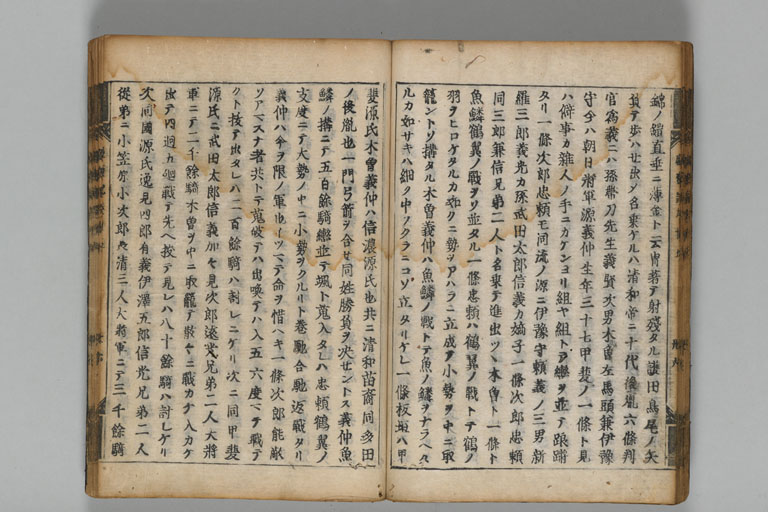 錦ノ鎧直垂ニ薄金ト云冑著テ射殘タル護田鳥尾ノ矢
負テ歩ハセ出シ名乗ケルハ清和帝ニ十代後胤六條判
官爲義ニハ孫帶刀先生義賢次男木曽左馬頭兼伊豫
守今ハ朝日將軍源義仲生年三十七甲斐ノ一條ト見
ハ僻事カ雜人ノ手ニカケンヨリ組ヤ組トテ轡ヲ並テ
タリ一條次郎忠頼モ同流ノ源ニ伊豫守頼義ノ三男新
羅三郎義光カ孫武田太郎信義カ嫡子一條次郎忠頼
同三郎兼信兄弟二人ト名乗テ進出ツヽ木曽ト一條ト
魚鱗鶴翼ノ戰ヲソ並タル一條忠頼ハ鶴翼ノ戰トテ鶴ノ
羽ヲヒロケタルカ如クニ勢ヲアハラニ立成テ小勢ヲ中ニ取
籠ントソ構タル木曽義仲ハ魚鱗ノ戰トテ魚ノ鱗ヲナラヘタ
ルカ如サキハ細ク中フクラニコソ立タリケレ一條板垣ハ甲
斐源氏木曽義仲ハ信濃源氏也共ニ清和苗裔同多田
ノ後胤也一門弓箭ヲ合セ同姓勝負ヲ決セントス義仲魚
鱗ノ構ニテ五百餘騎轡並テ颯ト蒐入タレハ忠頼鶴翼ノ
支度ニテ大勢ノ中ニ小勢ヲクルリト卷馳合馳返戰タリ
義仲ハ今ヲ限ノ軍也イツマテ命ヲ惜ヘキ一條次郎能敵
ソアマスナ者共トテ蒐破テハ出喚テハ入五六度マテ戰テ
クト抜テ出タレハ二百餘騎ハ討レニケリ次ニ同甲斐
源氏ニ武田太郎信義加々見次郎遠光兄弟二人大將
軍ニテ二千餘騎木曽ヲ中ニ取籠テ散々ニ戰カケ入カケ
出テ四週カ廻戰テ先ヘ抜テ見レハ八十餘騎ハ討レケリ
次同國源氏逸見四郎有義伊澤五郎信光兄弟二人
從弟ニ小笠原小次郎長清三人大將軍ニテ三千餘騎